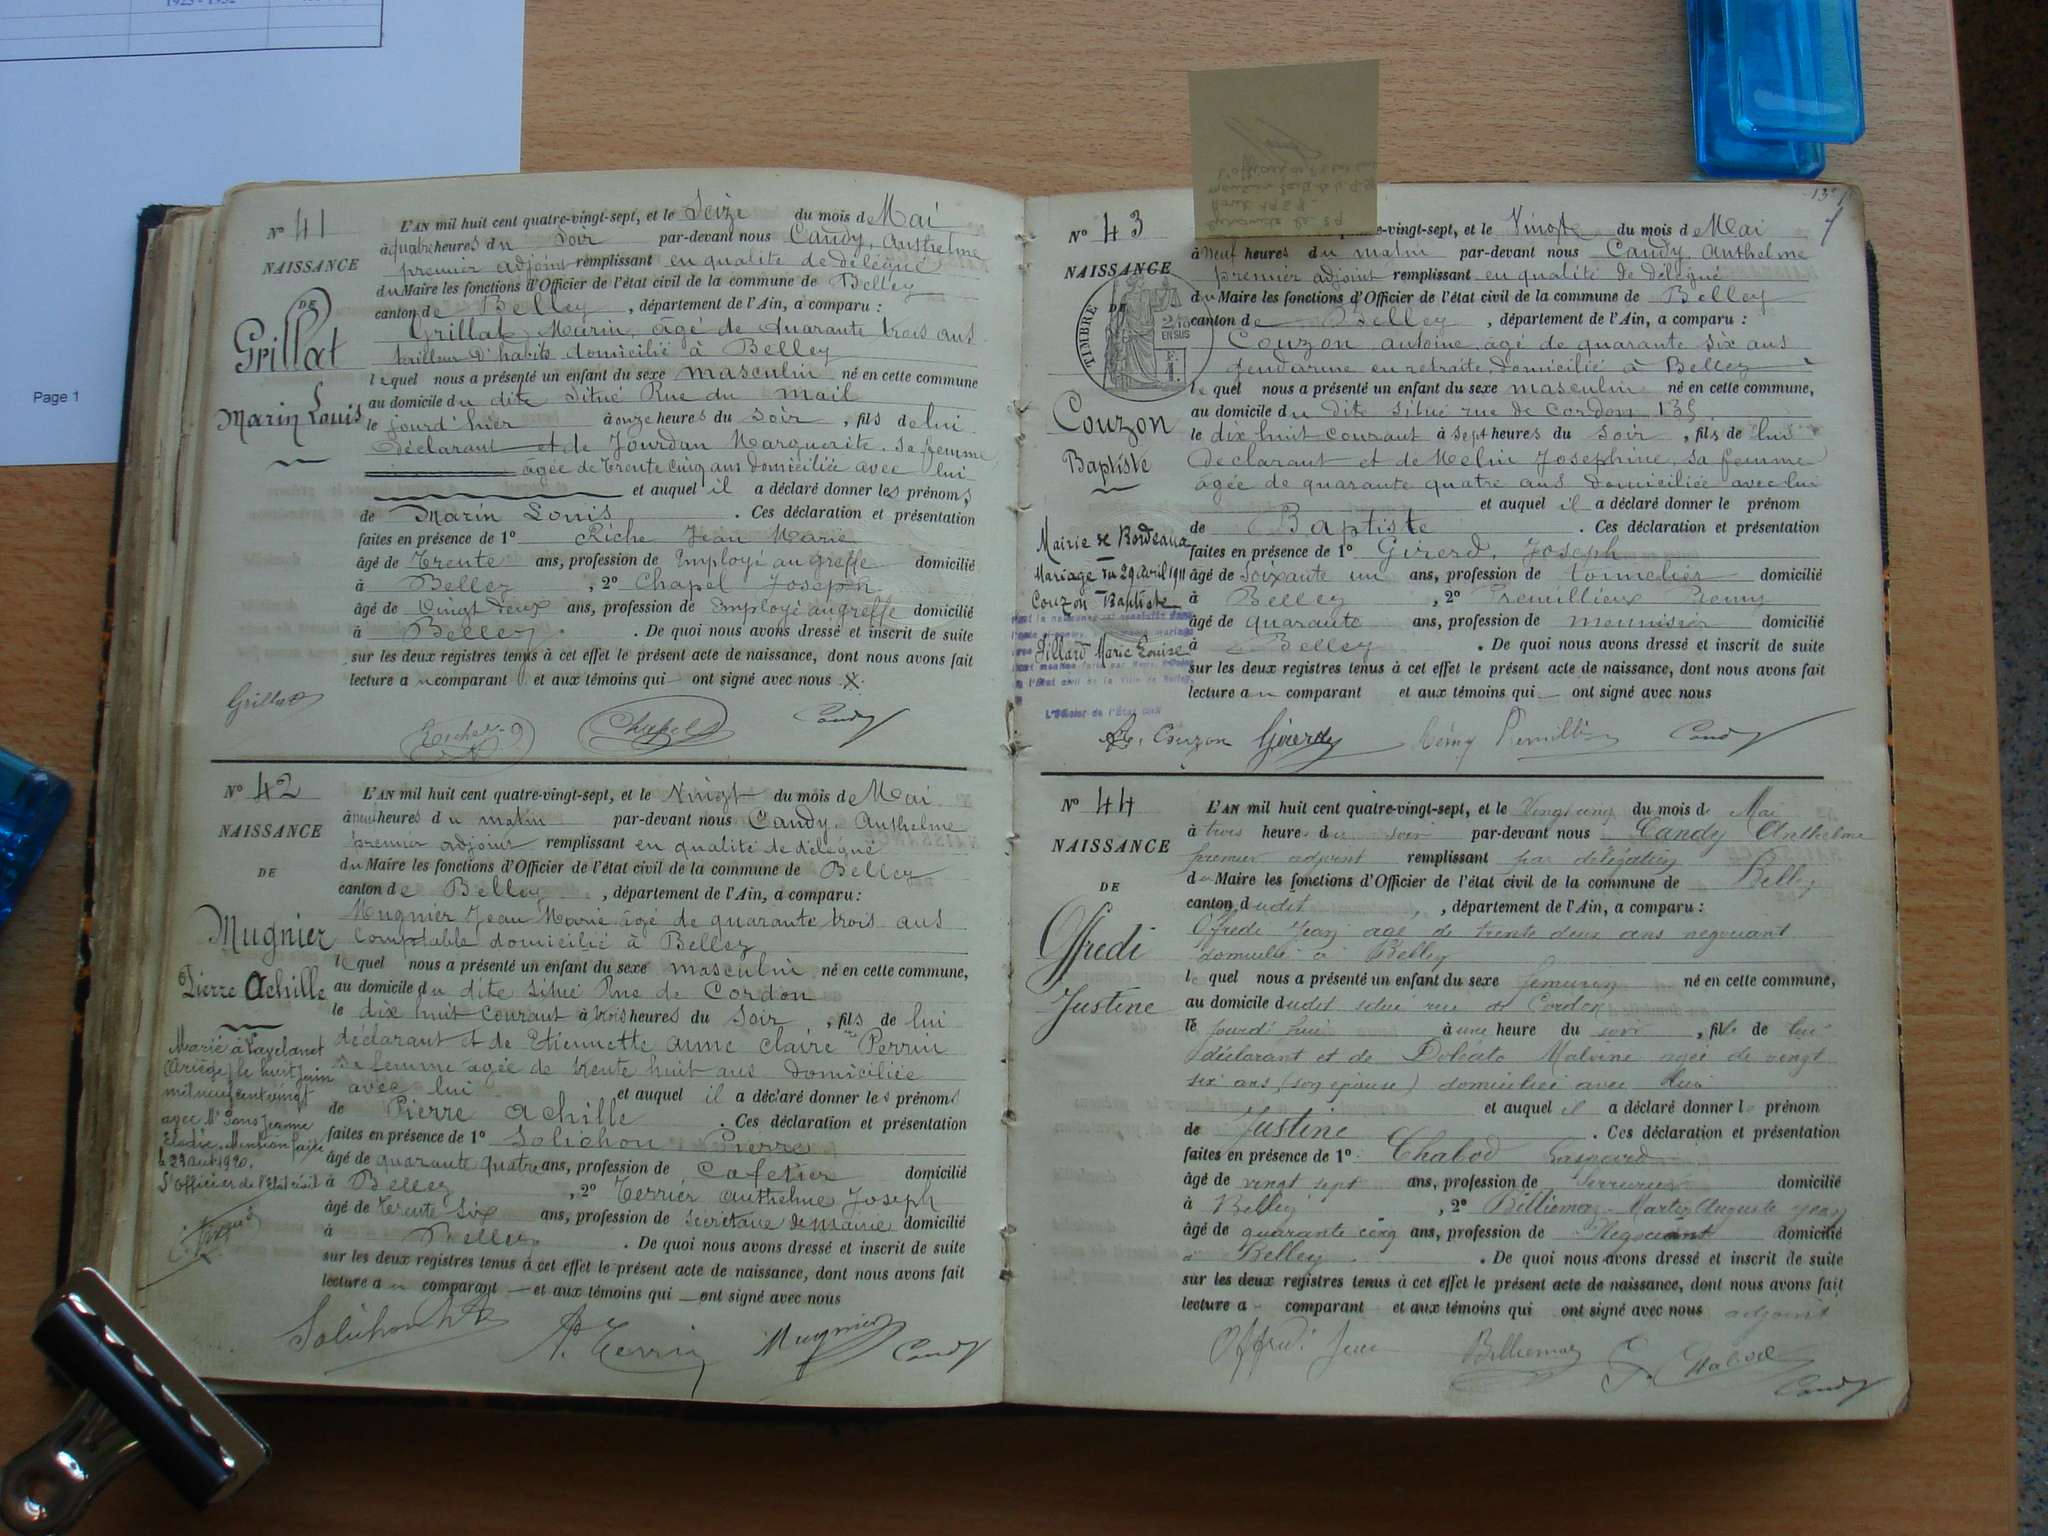 1923 - 1932
Page 1
N° 41
NAISSANCE
DE
Grillat
Marin Louis
L'AN mil huit cent quatre-vingt-sept, et le Seize du mois de Mai
à quatre heures du Soir par-devant nous Candy, Anthelme
premier adjoint remplissant en qualité de délégué
du Maire les fonctions d'Officier de l'état civil de la commune de Belley
canton de Belley, département de l'Ain, a comparu :
Grillat Marin, âgé de quarante trois ans
tailleur d'habits domicilié à Belley
lequel nous a présenté un enfant du sexe masculin né en cette commune
au domicile du dite situé Rue du mail
le jourd'hier à onze heures du soir, fils de lui
déclarant et de Jourdan Marguerite, sa femme
âgée de trente cinq ans domiciliée avec lui
et auquel il a déclaré donner les prénoms
de Marin Louis. Ces déclaration et présentation
faites en présence de 1° Riche Jean Marie
âgé de trente ans, profession de Employé au greffe domicilié
à Belley, 2° Chapel Joseph
âgé de vingt deux ans, profession de Employé au greffe domicilié
à Belley. De quoi nous avons dressé et inscrit de suite
sur les deux registres tenus à cet effet le présent acte de naissance, dont nous avons fait
lecture au comparant et aux témoins qui ont signé avec nous
Grillat Chapel Candy
N° 42
NAISSANCE
DE
Mugnier
Pierre Achille
Marié à Lavelanet
(Ariège) le huit juin
mil neuf cent vingt
avec Mle Pons Jeanne
Elodie. Mention faite
le 23 août 1920.
L'Officier de l'état civil
L'AN mil huit cent quatre-vingt-sept, et le Vingt du mois de Mai
à neuf heures du matin par-devant nous Candy, Anthelme
premier adjoint remplissant en qualité de délégué
du Maire les fonctions d'Officier de l'état civil de la commune de Belley
canton de Belley, département de l'Ain, a comparu :
Mugnier Jean Marie âgé de quarante trois ans
comptable domicilié à Belley
lequel nous a présenté un enfant du sexe masculin né en cette commune,
au domicile du dite situé Rue de Cordon
le dix huit courant à trois heures du Soir, fils de lui
déclarant et de Etiennette anne claire Perrin
sa femme âgée de trente huit ans domiciliée
avec lui et auquel il a déclaré donner les prénoms
de Pierre achille. Ces déclaration et présentation
faites en présence de 1° Solichon Pierre
âgé de quarante quatre ans, profession de Cafetier domicilié
à Belley, 2° Terrier anthelme Joseph
âgé de trente six ans, profession de Secrétaire de mairie domicilié
à Belley. De quoi nous avons dressé et inscrit de suite
sur les deux registres tenus à cet effet le présent acte de naissance, dont nous avons fait
lecture au comparant et aux témoins qui ont signé avec nous
Solichon Mugnier Candy
13
N° 43
NAISSANCE
DE
TIMBRE
EN SUS
Couzon
Baptiste
Mairie de Bordeaux
Mariage du 29 avril 1911
Couzon Baptiste
Fillard Marie Louise
L'Officier de l'État civil
-vingt-sept, et le Vingt du mois de Mai
à neuf heures du matin par-devant nous Candy, Anthelme
premier adjoint remplissant en qualité de délégué
du Maire les fonctions d'Officier de l'état civil de la commune de Belley
canton de Belley, département de l'Ain, a comparu :
Couzon antoine, âgé de quarante six ans
gendarme en retraite, domicilié à Belley
lequel nous a présenté un enfant du sexe masculin né en cette commune,
au domicile du dite situé rue de Cordon 135
le dix huit courant à sept heures du Soir, fils de lui
declarant et de Melin Josephine, sa femme
âgée de quarante quatre ans domiciliée avec lui
et auquel il a déclaré donner le prénom
de Baptiste. Ces déclaration et présentation
faites en présence de 1° Girerd, Joseph
âgé de soixante un ans, profession de tonnelier domicilié
à Belley, 2° Premillieux Remy
âgé de quarante ans, profession de menuisier domicilié
à Belley. De quoi nous avons dressé et inscrit de suite
sur les deux registres tenus à cet effet le présent acte de naissance, dont nous avons fait
lecture au comparant et aux témoins qui ont signé avec nous
Couzon Candy
N° 44
NAISSANCE
DE
Offredi
Justine
L'AN mil huit cent quatre-vingt-sept, et le Vingt cinq du mois de Mai
à trois heures du soir par-devant nous Candy Anthelme
premier adjoint remplissant par délégation
du Maire les fonctions d'Officier de l'état civil de la commune de Belley
canton dudit, département de l'Ain, a comparu :
Offredi Jean âgé de trente deux ans négociant
domicilié à Belley
lequel nous a présenté un enfant du sexe féminin né en cette commune,
au domicile dudit situé rue de Cordon
le jourd'hui à une heure du soir, fille de lui
déclarant et de Dolcato Malvine agée de vingt
six ans (son épouse) domiciliée avec lui
et auquel il a déclaré donner le prénom
de Justine. Ces déclaration et présentation
faites en présence de 1° Chabod Gaspard
âgé de vingt sept ans, profession de serrurier domicilié
à Belley, 2° Billiemaz Martin Auguste Jean
âgé de quarante cinq ans, profession de Négociant domicilié
à Belley. De quoi nous avons dressé et inscrit de suite
sur les deux registres tenus à cet effet le présent acte de naissance, dont nous avons fait
lecture au comparant et aux témoins qui ont signé avec nous adjoint
Offredi Jean Billiemaz G. Chabod Candy